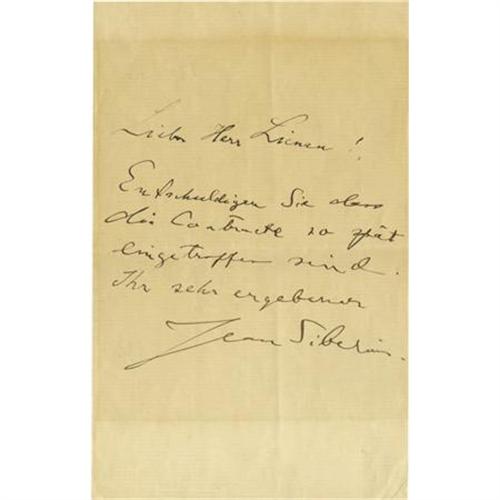 Lieber Herr Lienau!
Entschuldigen Sie dass
die Contracte so spät
eingetroffen sind.
Ihr sehr ergebener
Jean Sibelius.